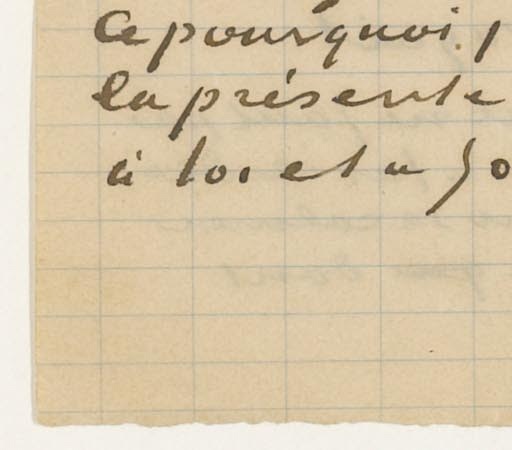 ce pourquoi
la présente
à toi et a Jo